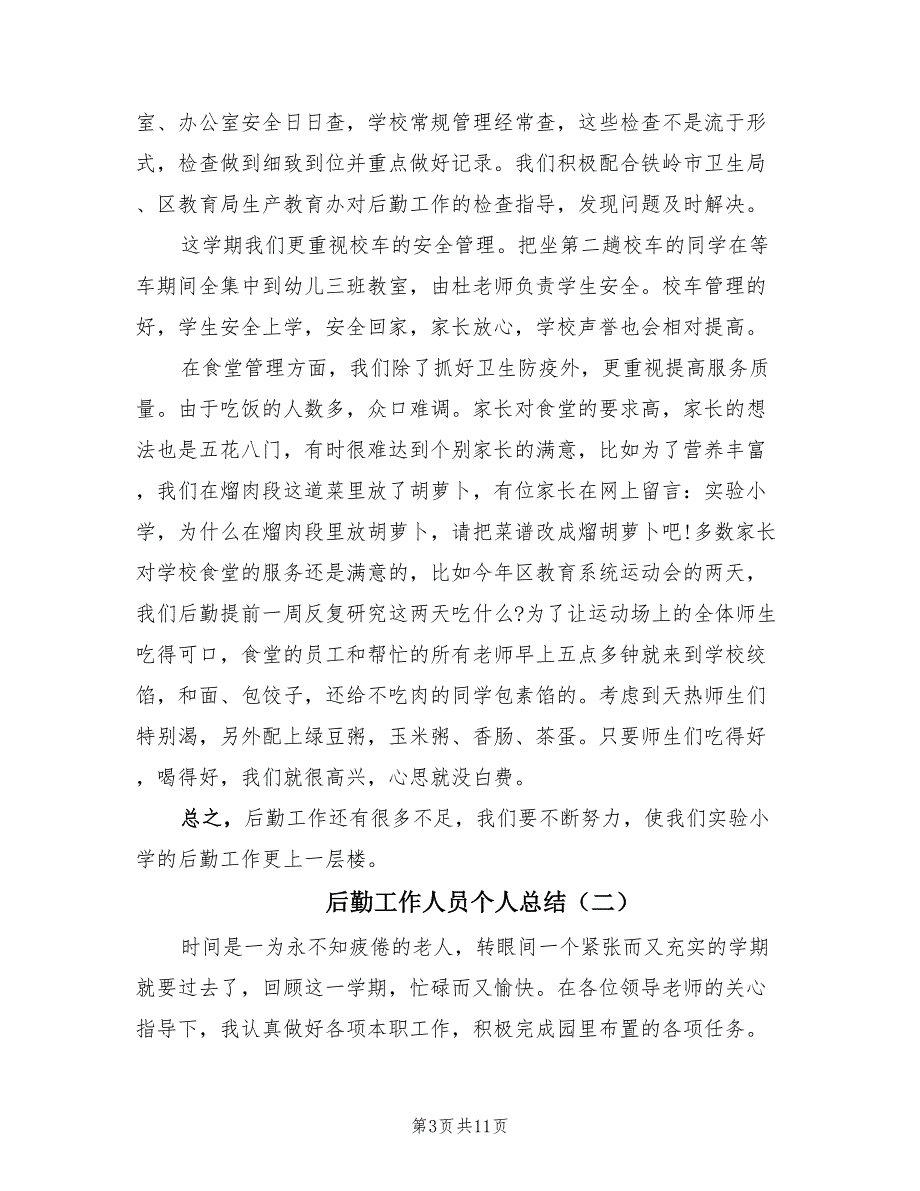 室、办公室安全日日查，学校常规管理经常查，这些检查不是流于形
式，检查做到细致到位并重点做好记录。我们积极配合铁岭市卫生局
、区教育局生产教育办对后勤工作的检查指导，发现问题及时解决。
这学期我们更重视校车的安全管理。把坐第二趟校车的同学在等
车期间全集中到幼儿三班教室，由杜老师负责学生安全。校车管理的
好，学生安全上学，安全回家，家长放心，学校声誉也会相对提高。
在食堂管理方面，我们除了抓好卫生防疫外，更重视提高服务质
量。由于吃饭的人数多，众口难调。家长对食堂的要求高，家长的想
法也是五花八门，有时很难达到个别家长的满意，比如为了营养丰富
，我们在熘肉段这道菜里放了胡萝卜，有位家长在网上留言：实验小
学，为什么在熘肉段里放胡萝卜，请把菜谱改成熘胡萝卜吧!多数家长
对学校食堂的服务还是满意的，比如今年区教育系统运动会的两天，
我们后勤提前一周反复研究这两天吃什么?为了让运动场上的全体师生
吃得可口，食堂的员工和帮忙的所有老师早上五点多钟就来到学校绞
馅，和面、包饺子，还给不吃肉的同学包素馅的。考虑到天热师生们
特别渴，另外配上绿豆粥，玉米粥、香肠、茶蛋。只要师生们吃得好
，喝得好，我们就很高兴，心思就没白费。
总之，后勤工作还有很多不足，我们要不断努力，使我们实验小
学的后勤工作更上一层楼。
后勤工作人员个人总结（二）
时间是一为永不知疲倦的老人，转眼间一个紧张而又充实的学期
就要过去了，回顾这一学期，忙碌而又愉快。在各位领导老师的关心
指导下，我认真做好各项本职工作，积极完成园里布置的各项任务。
第3页共11页